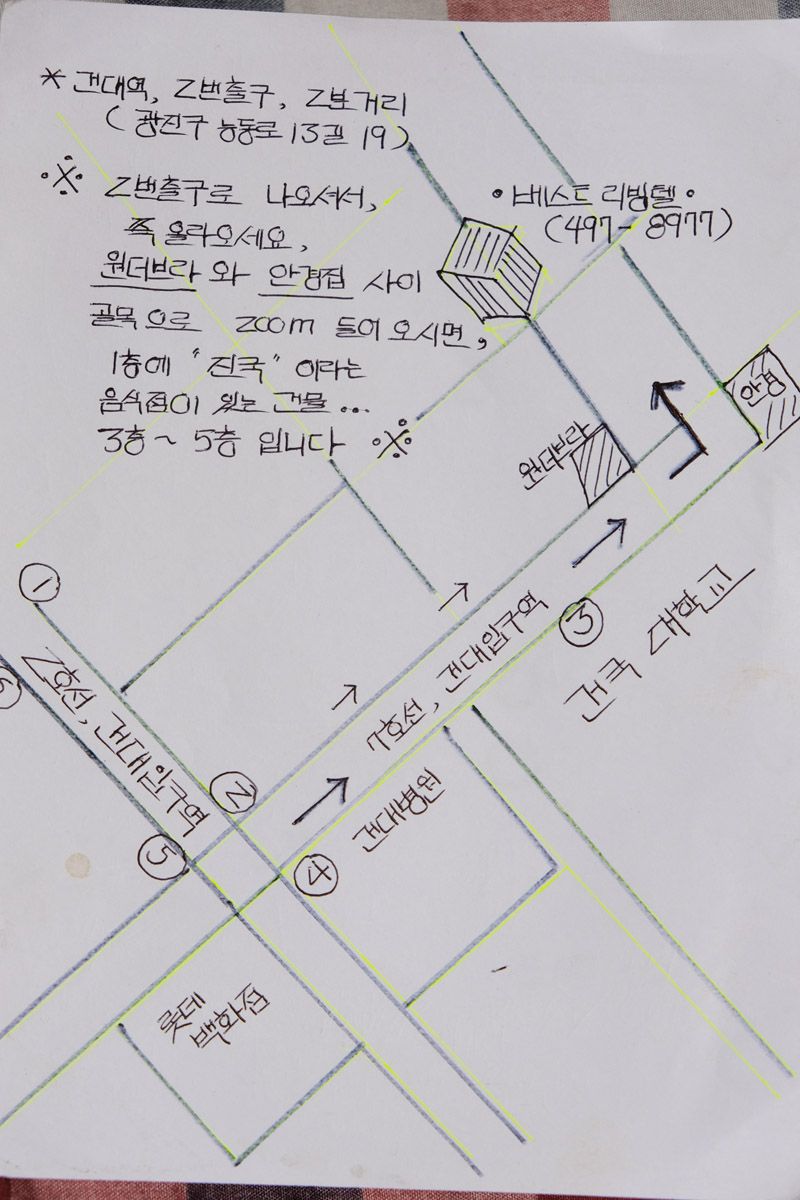 * 건대역, 2번출구, 2보거리
( 광진구 능동로 13길 19 )
※ 2번출구로 나오셔서,
쭉 올라오세요,
원더브라 와 안경집 사이
골목으로 zoom 들어오시면,
1층에 "진국" 이라는
음식점이 있는 건물...
3층~5층 입니다 ※
• 베스트 리빙텔 •
(497-8977)
안경
원더브라
①
⑥
2호선, 건대입구역
②
⑤
7호선, 건대입구역
③
건국 대학교
④
건대병원
롯데
백화점